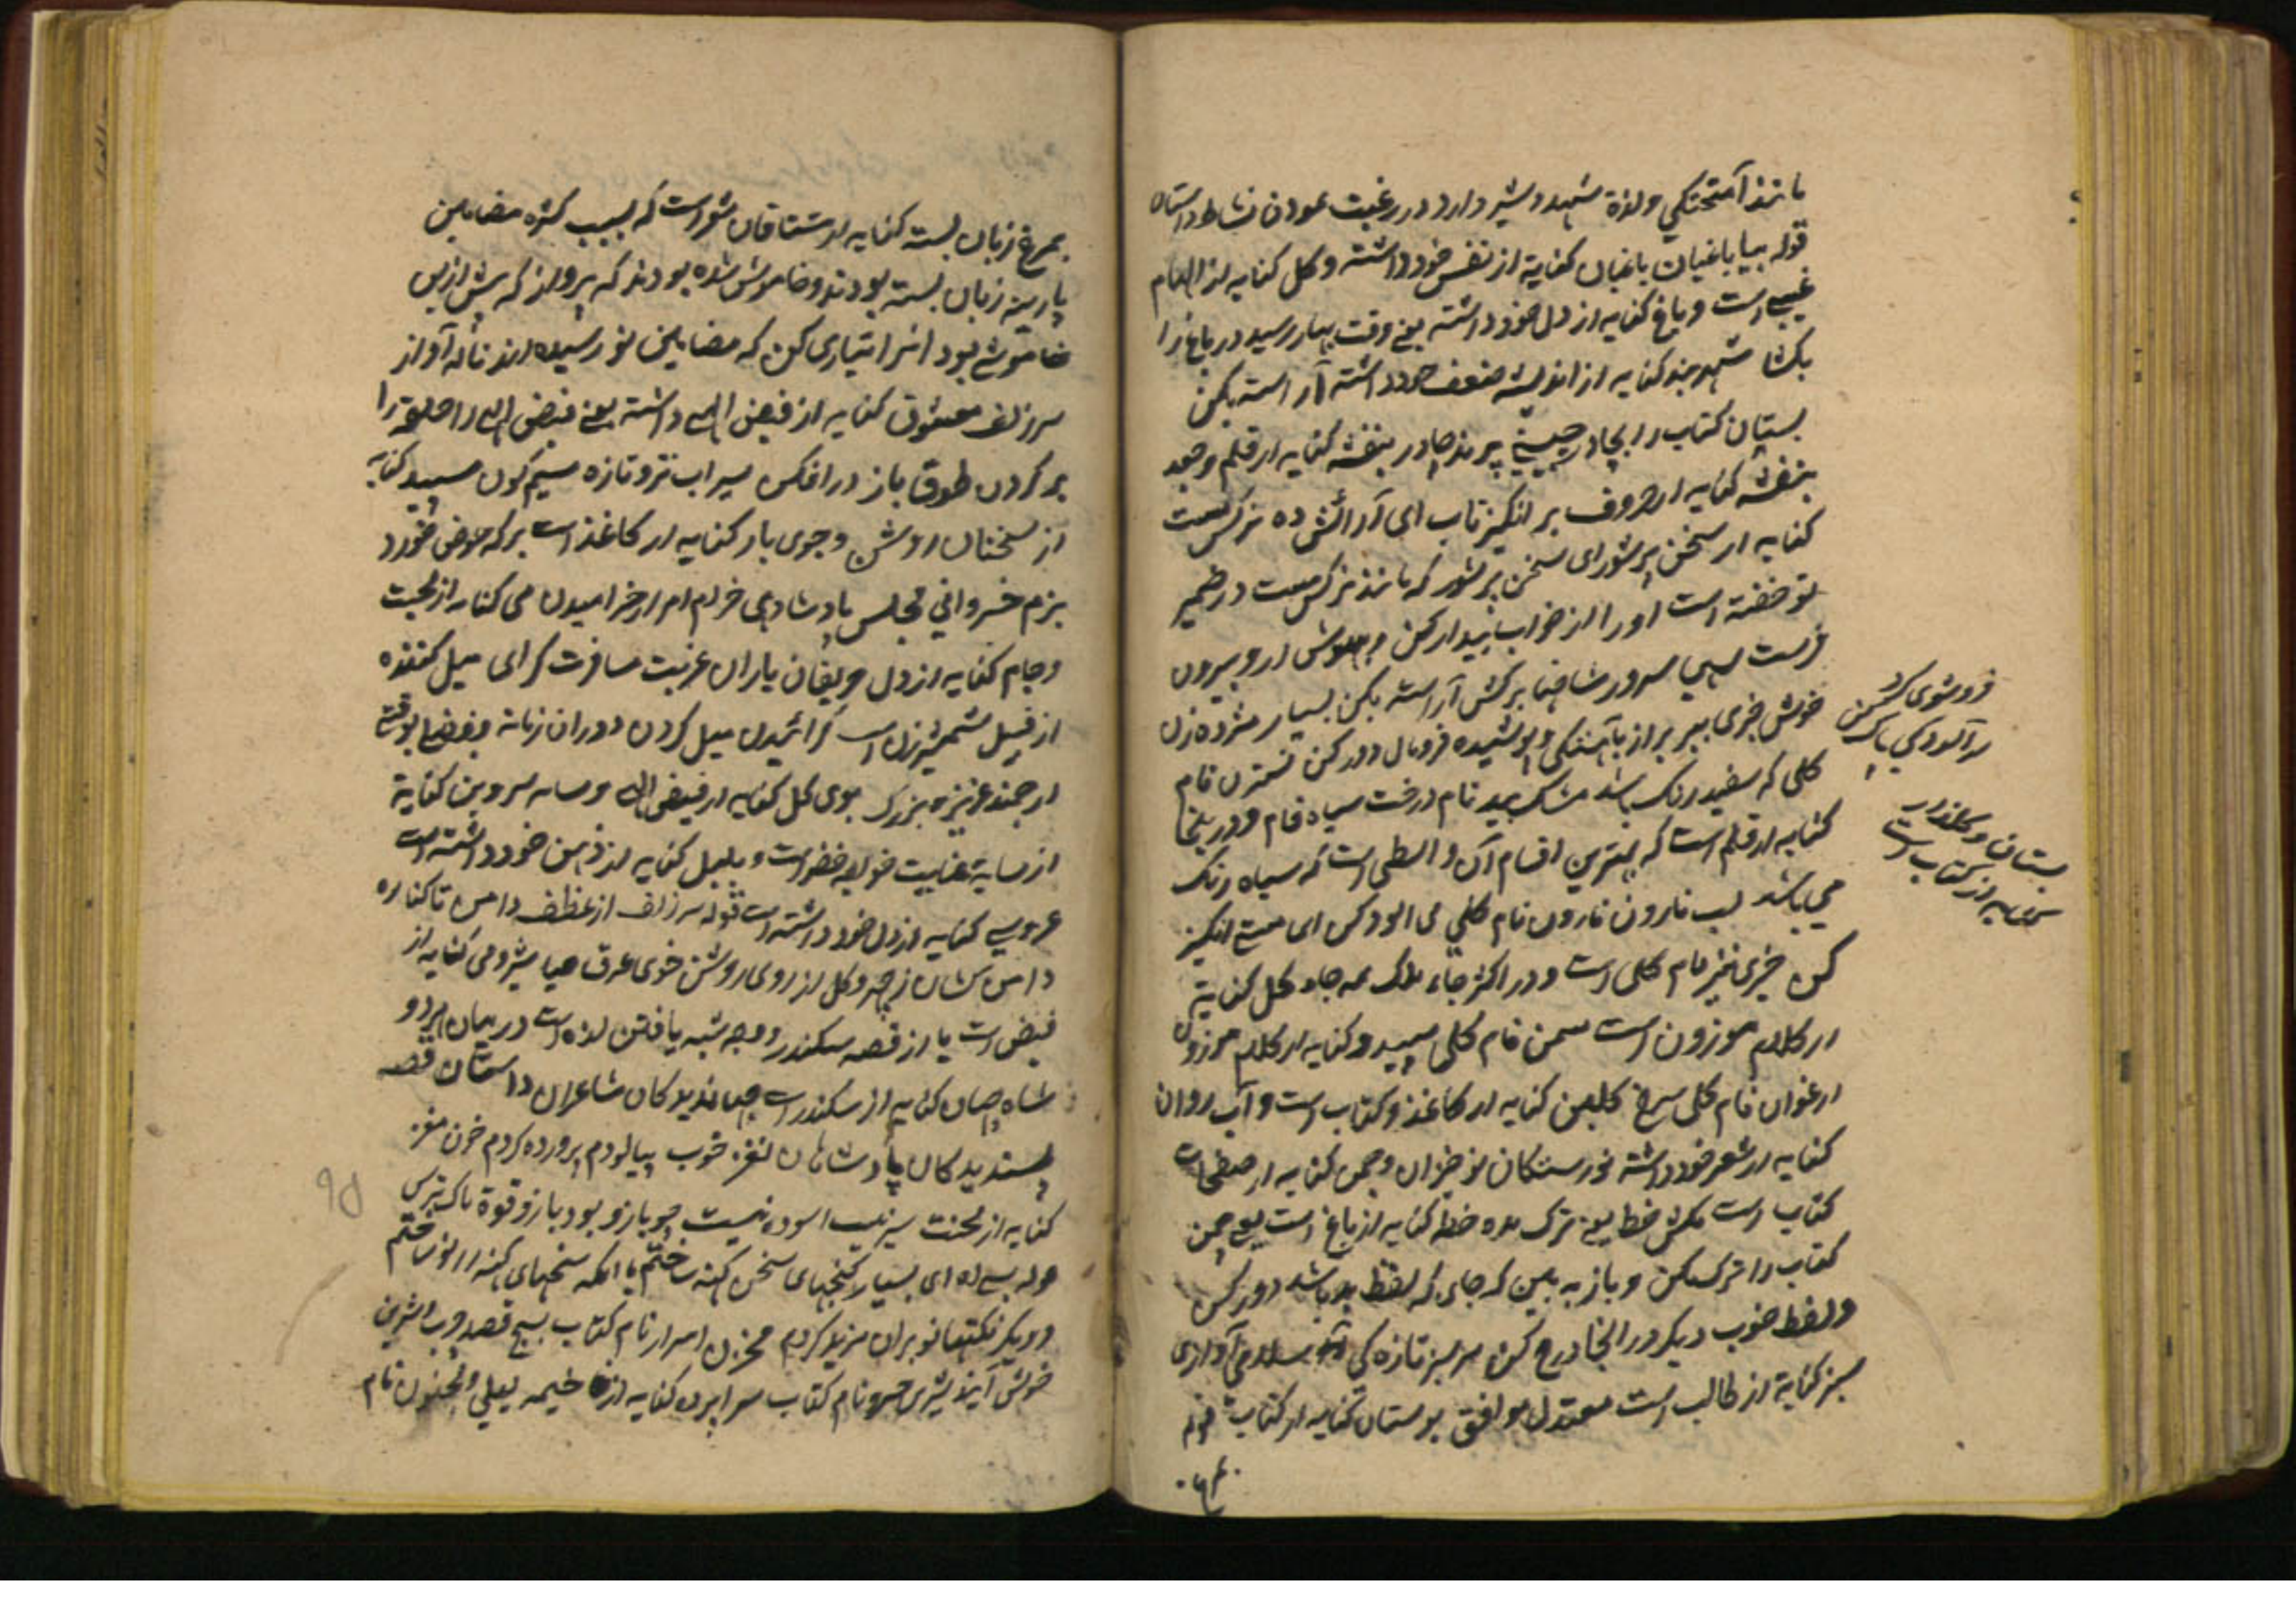 مانند آمیختگی ولذة شهد و شیر دارد در رغبت نمودن نشاط داستان
قوله بیا باغبان باغبان کنایة از نفس خود داشته و گل کنایه از الهام
غیبی است و باغ کنایه از دل خود داشته یعنی وقت بهار رسید در باغ را
بکشا شهربند کنایه از اندیشه ضعف خود داشته آراسته بکن
بستان کتاب را بجادر چینی پرند چادر بنفشه کنایه از قلم و جعد
بنفشه کنایه از حروف بر انگیز تاب ای آرائش ده نرگس مست
کنایه از سخن پر شور ای سخن پر شور که مانند نرگس مست در ضمیر
تو خفته است او را از خواب بیدار کن و بهوش ار و بیرون
فرست سهی سرو را شاخها بر کش آراسته بکن بسیار مژده زن
خوش خبری ببر بر از باهستگی و پوشیده فرومال دور کن نسترن نام
گلی که سفید رنگ باشد مشک بید نام درخت سیاه فام و در اینجا
کنایه از قلم است که بهترین اقسام آن واسطی است که سیاه رنگ
می باشد لب نارون نارون نام گلی می آلود کن ای مستی انگیز
کن خیری نیز نام گلی است و در اکثر جاء بلکه همه جا گل کنایة
از کلام موزون است سمن نام گلی سپید و کنایه از کلام موزون
ارغوان نام گلی سرخ گلبن کنایه از کاغذ و کتاب است و آب روان
کنایه از شعر خود داشته نورستگان نو خیزان و چمن کنایه از صفحات
کتاب است مکش خط یعنی ترک مده خط کنایه از باغ است یعنی چمن
کتاب را ترک مکن و باز به بین که جای که لفظ بد باشد دور کن
ولفظ خوب دیگر در انجا درج کن سر سبز تازه کی سلامی آزادی
سبز کنایة از طالب است معتدل موافق بوستان کنایه از کتاب قوله
فروشوی کرد
از آلودگی پاک کن
بستان و گلزار
کنایه از کتاب است
بمرغ زبان بسته کنایه از مشتاقان شور است که بسبب کثرة مضامین
پارینه زبان بسته بودند و خاموش شده بودند که پرواز که پیش ازین
خاموشی بود انرا تیاری کن که مضامین نو رسیده اند ناله آواز
سر زلف معشوق کنایه از فیض الهی داشته یعنی فیض الهی را حلقه را
بر گردن طوق باز در افکن سیراب ترو تازه سیم گون سپید کنایه
از سخنان روشن و جوی بار کنایه از کاغذ است برکه حوض خورد
بزم خسروانی مجلس پادشاهی خرام امر از خرامیدن می کنایه از محبت
وجام کنایه از دل حریفان یاران غربت مسافرت گرای میل کننده
از قبیل شمشیر زن است گرائیدن میل کردن دوران زمانة
ارجمند عزیز و بزرگ بوی گل کنایه از فیض اله و سایه سرو بن کنایة
از سایة عنایت خواجه خضر است و بلبل کنایه از ذهن خود داشته است
عروسی کنایه از دل خود داشته است قوله سر زلف از عطف دامن تا کناره
دامن کشان ز چهره گل از روی روشن خوی عرق حیا شرومی کنایه از
فیض است یا از قصه سکندر و وجه شبه یافتن لذة است در میان هر دو
شاه جهان کنایه از سکندر است جهاندیدکان شاعران داستان قصه
پسندیدکان پادشاهان نغز خوب پیالودم پرورده کردم خون مغز
کنایه از محنت سر نیست اسوده نیست چو بازو بود بازو قوة
قوله بسی ای بسیار گنجهای سخن کهنه ساختم یا انکه سخنهای کهنه را نو ساختم
و دیگر نکتها نو بران مزید کردم مخزن اسرار نام کتاب بسیج قصد چرب و شیرین
خوش آیند شیرین خسرو نام کتاب سرا پرده کنایه از خیمه لیلی و مجنون نام